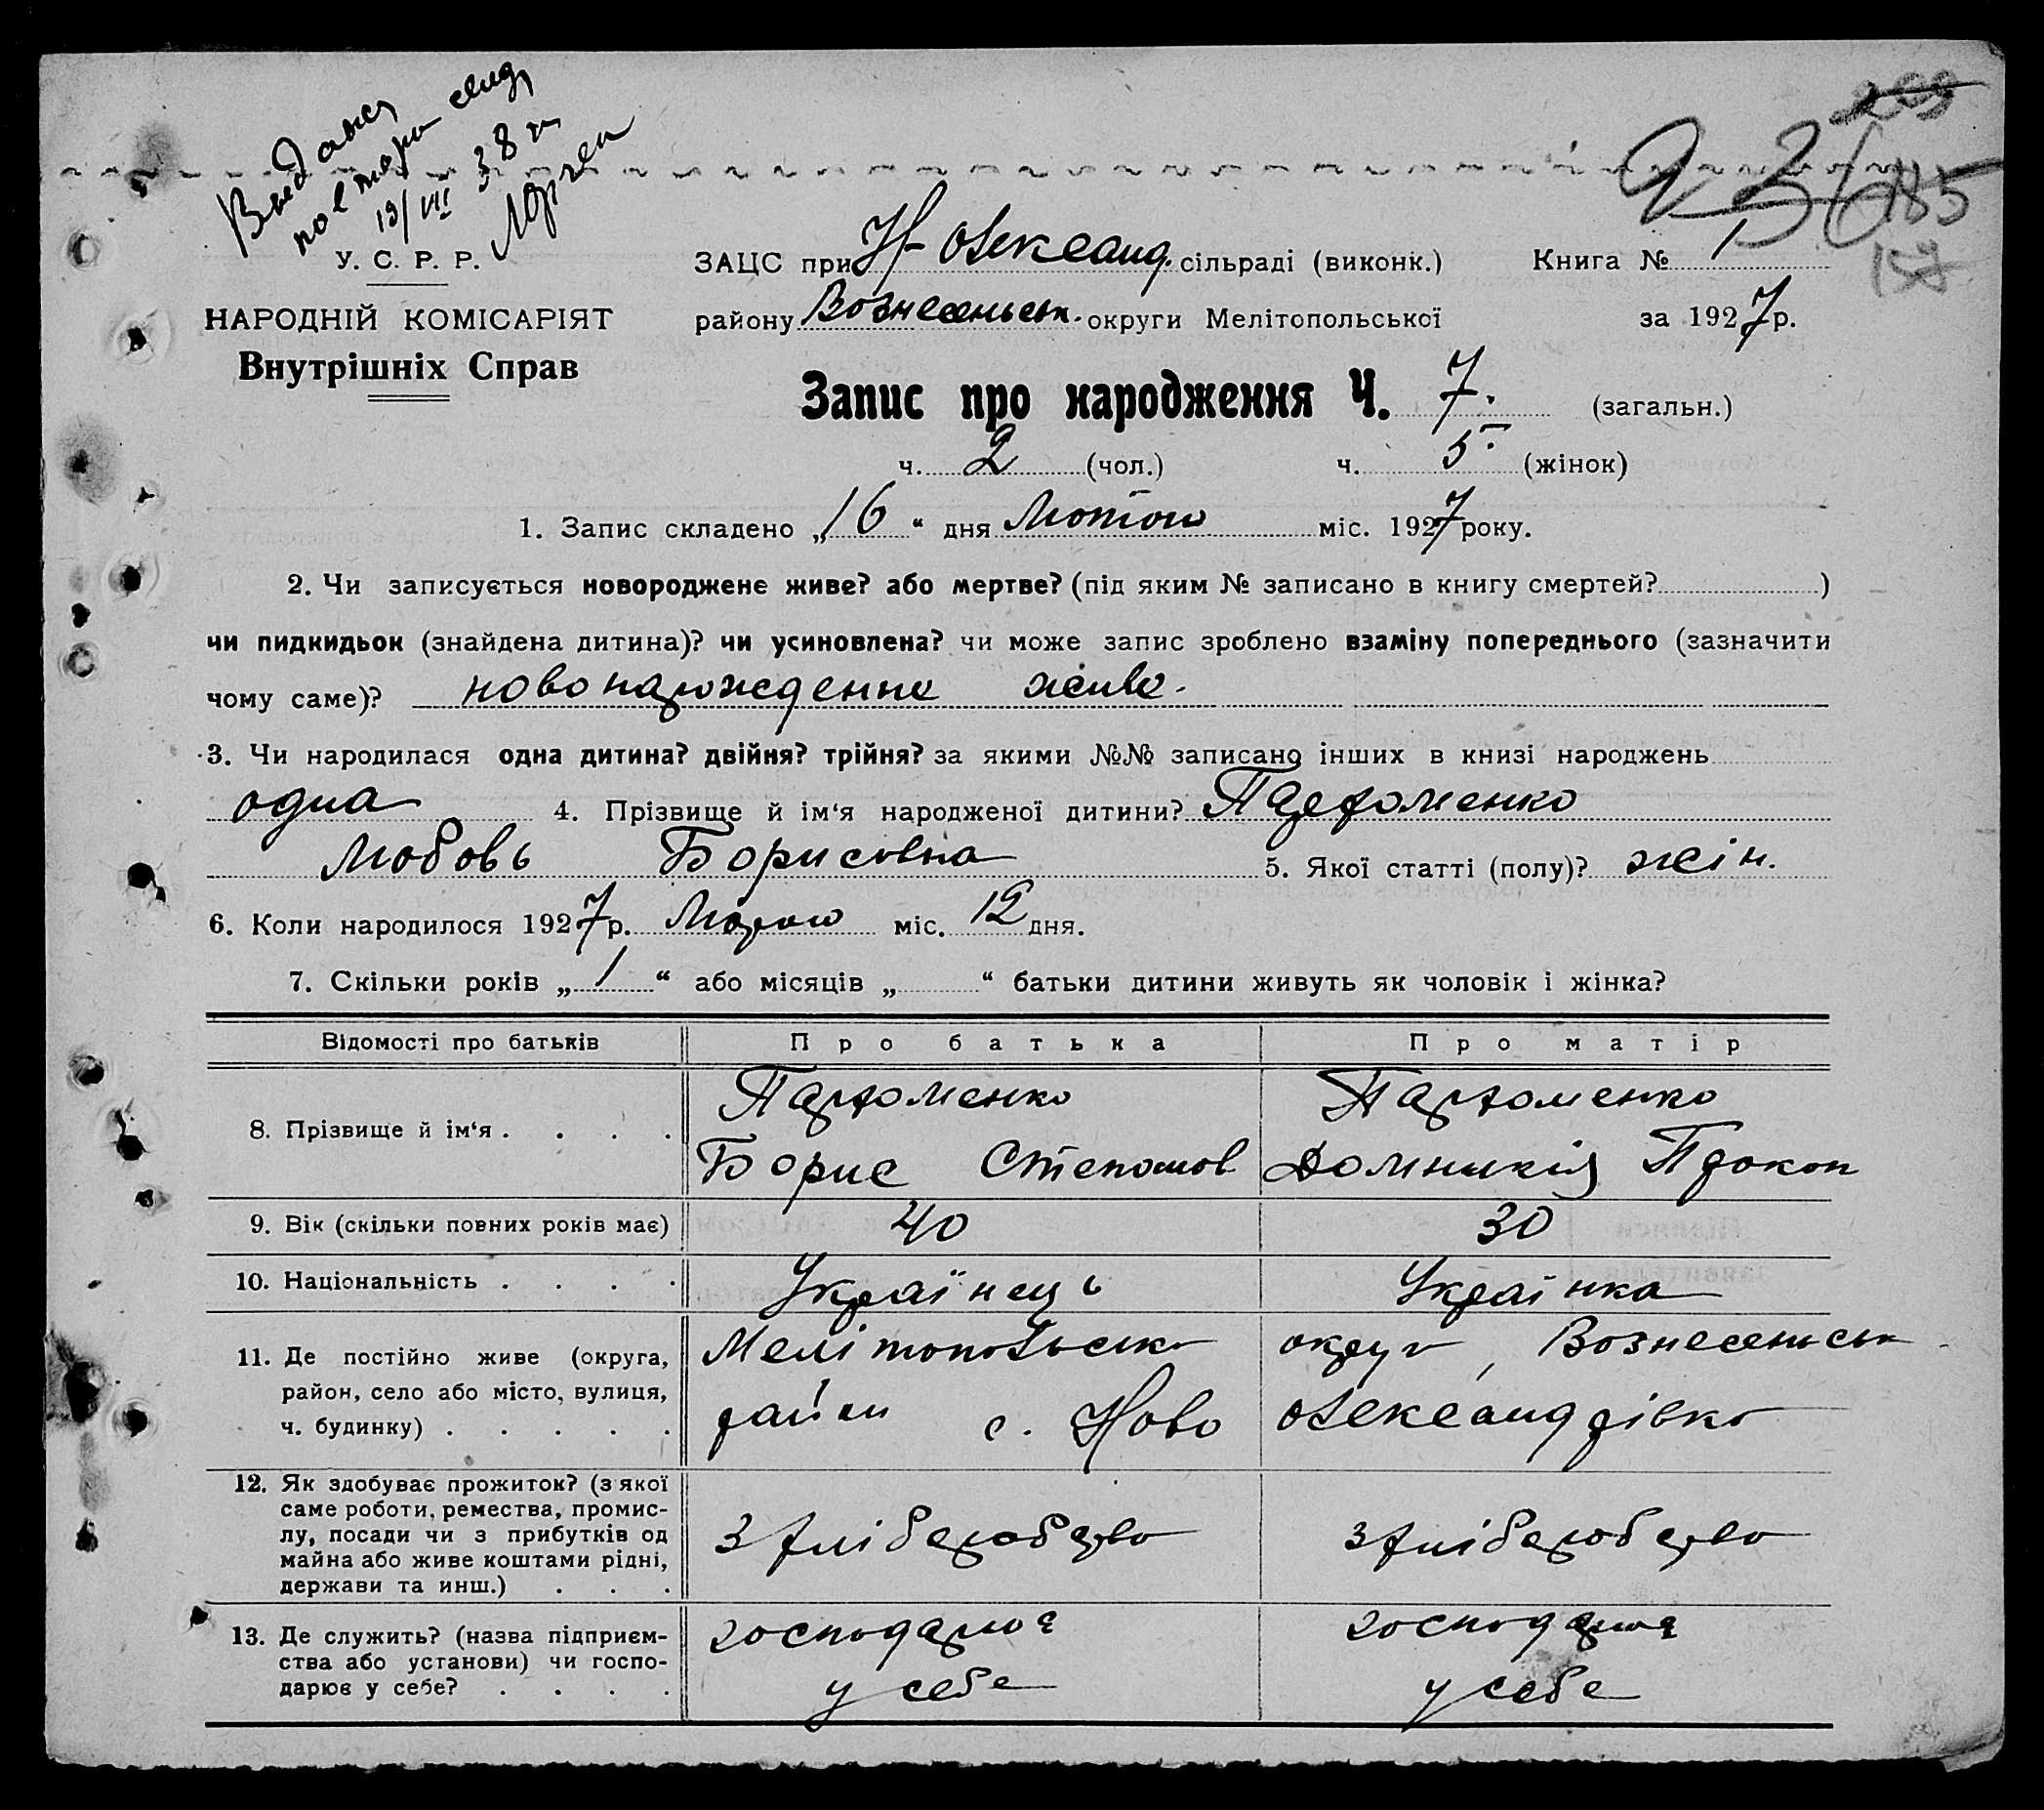 повтори свид
19/VII 38 г
У. С. Р. Р.
НАРОДНІЙ КОМІСАРІЯТ
Внутрішніх Справ
235
185
ЗАЦС при Н-Олександ. сільраді (виконк.) Книга № 1
району Вознесенськ. округи Мелітопольської за 1927 р.
Запис про народження Ч. 7. (загальн.)
ч. 2 (чол.) ч. 5. (жінок)
1. Запис складено „16“ дня Лютого міс. 1927 року.
2. Чи записується новороджене живе? або мертве? (під яким № записано в книгу смертей? )
чи пидкидьок (знайдена дитина)? чи усиновлена? чи може запис зроблено взаміну попереднього (зазначити
чому саме)? новонарожденне живе.
3. Чи народилася одна дитина? двійня? трійня? за якими №№ записано інших в книзі народжень
одна 4. Прізвище й ім‘я народженої дитини? Пархоменко
Любовь Борисовна 5. Якої статті (полу)? жін.
6. Коли народилося 1927 р. Лютого міс. 12 дня.
7. Скільки років „1“ або місяців „ “ батьки дитини живуть як чоловік і жінка?
Відомості про батьків Про батька Про матір
8. Прізвище й ім‘я . . . . Пархоменко Пархоменко
Борис Степанов Домникія Прокоп
9. Вік (скільки повних років має) 40 30
10. Національність . . . . Українець Українка
11. Де постійно живе (округа, район, село або місто, вулиця, ч. будинку) . . . . . Мелітопольсько округ, Вознесеньськ
район с. Ново Олександрівко
12. Як здобуває прожиток? (з якої
саме роботи, ремества, промис-
лу, посади чи з прибутків од
майна або живе коштами рідні,
держави та инш.) . . . З хліборобство З хліборобство
13. Де служить? (назва підприєм-
ства або установи) чи госпо-
дарює у себе? . . . . господарює господарює
у себе у себе